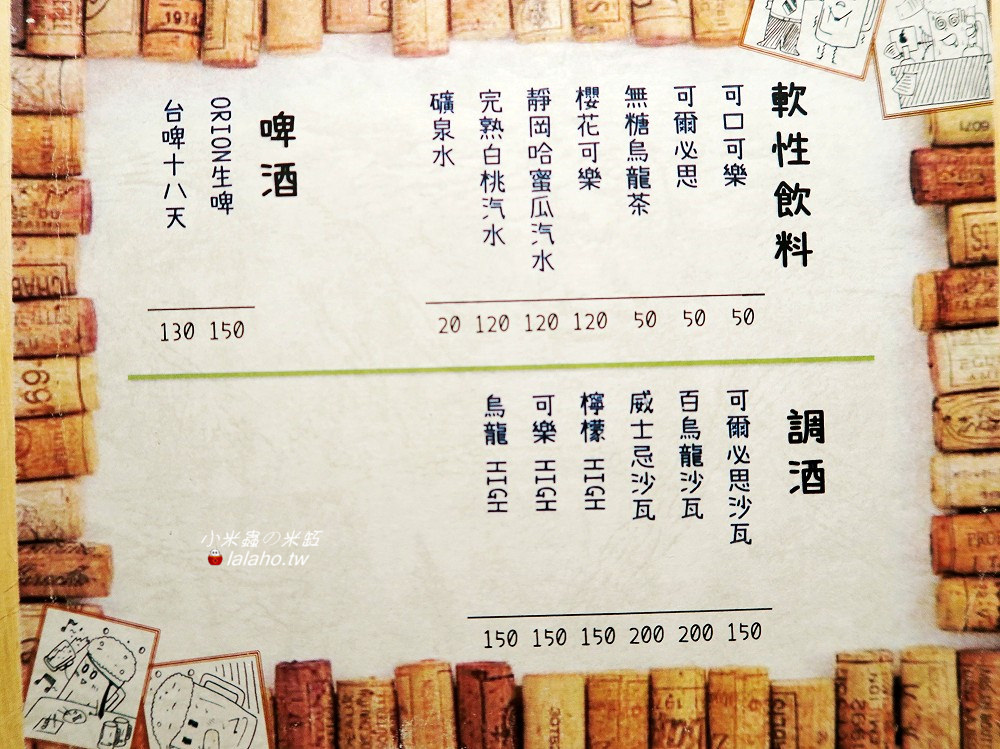 軟性飲料
可口可樂 50
可爾必思 50
無糖烏龍茶 50
櫻花可樂 120
靜岡哈蜜瓜汽水 120
完熟白桃汽水 120
礦泉水 20
啤酒
ORION生啤 150
台啤十八天 130
調酒
可爾必思沙瓦 150
百烏龍沙瓦 200
威士忌沙瓦 200
檸檬 HIGH 150
可樂 HIGH 150
烏龍 HIGH 150
小米蟲の米缸
lalaho.tw